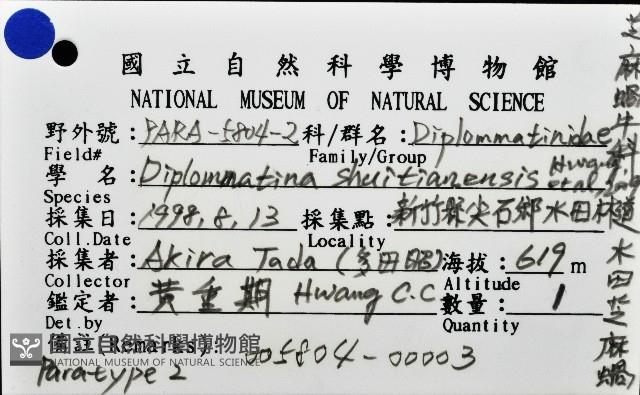 國立自然科學博物館
NATIONAL MUSEUM OF NATURAL SCIENCE
野外號:PARA-5804-2 科/群名:Diplommatinidae
Field# Family/Group
學 名:Diplommatina shuitianensis Hwang et al.
Species
採集日:1998.8.13 採集點:新竹縣尖石鄉水田林道
Coll.Date Locality
採集者:Akira Tada (多田昭) 海拔:619m
Collector Altitude
鑑定者:黃重期 Hwang C.C 數量:1
Det.by Quantity
備註(Remarks): 005804-00003
Paratype 2
芝麻蝸牛科 水田芝麻蝸
國立自然科學博物館
NATIONAL MUSEUM OF NATURAL SCIENCE